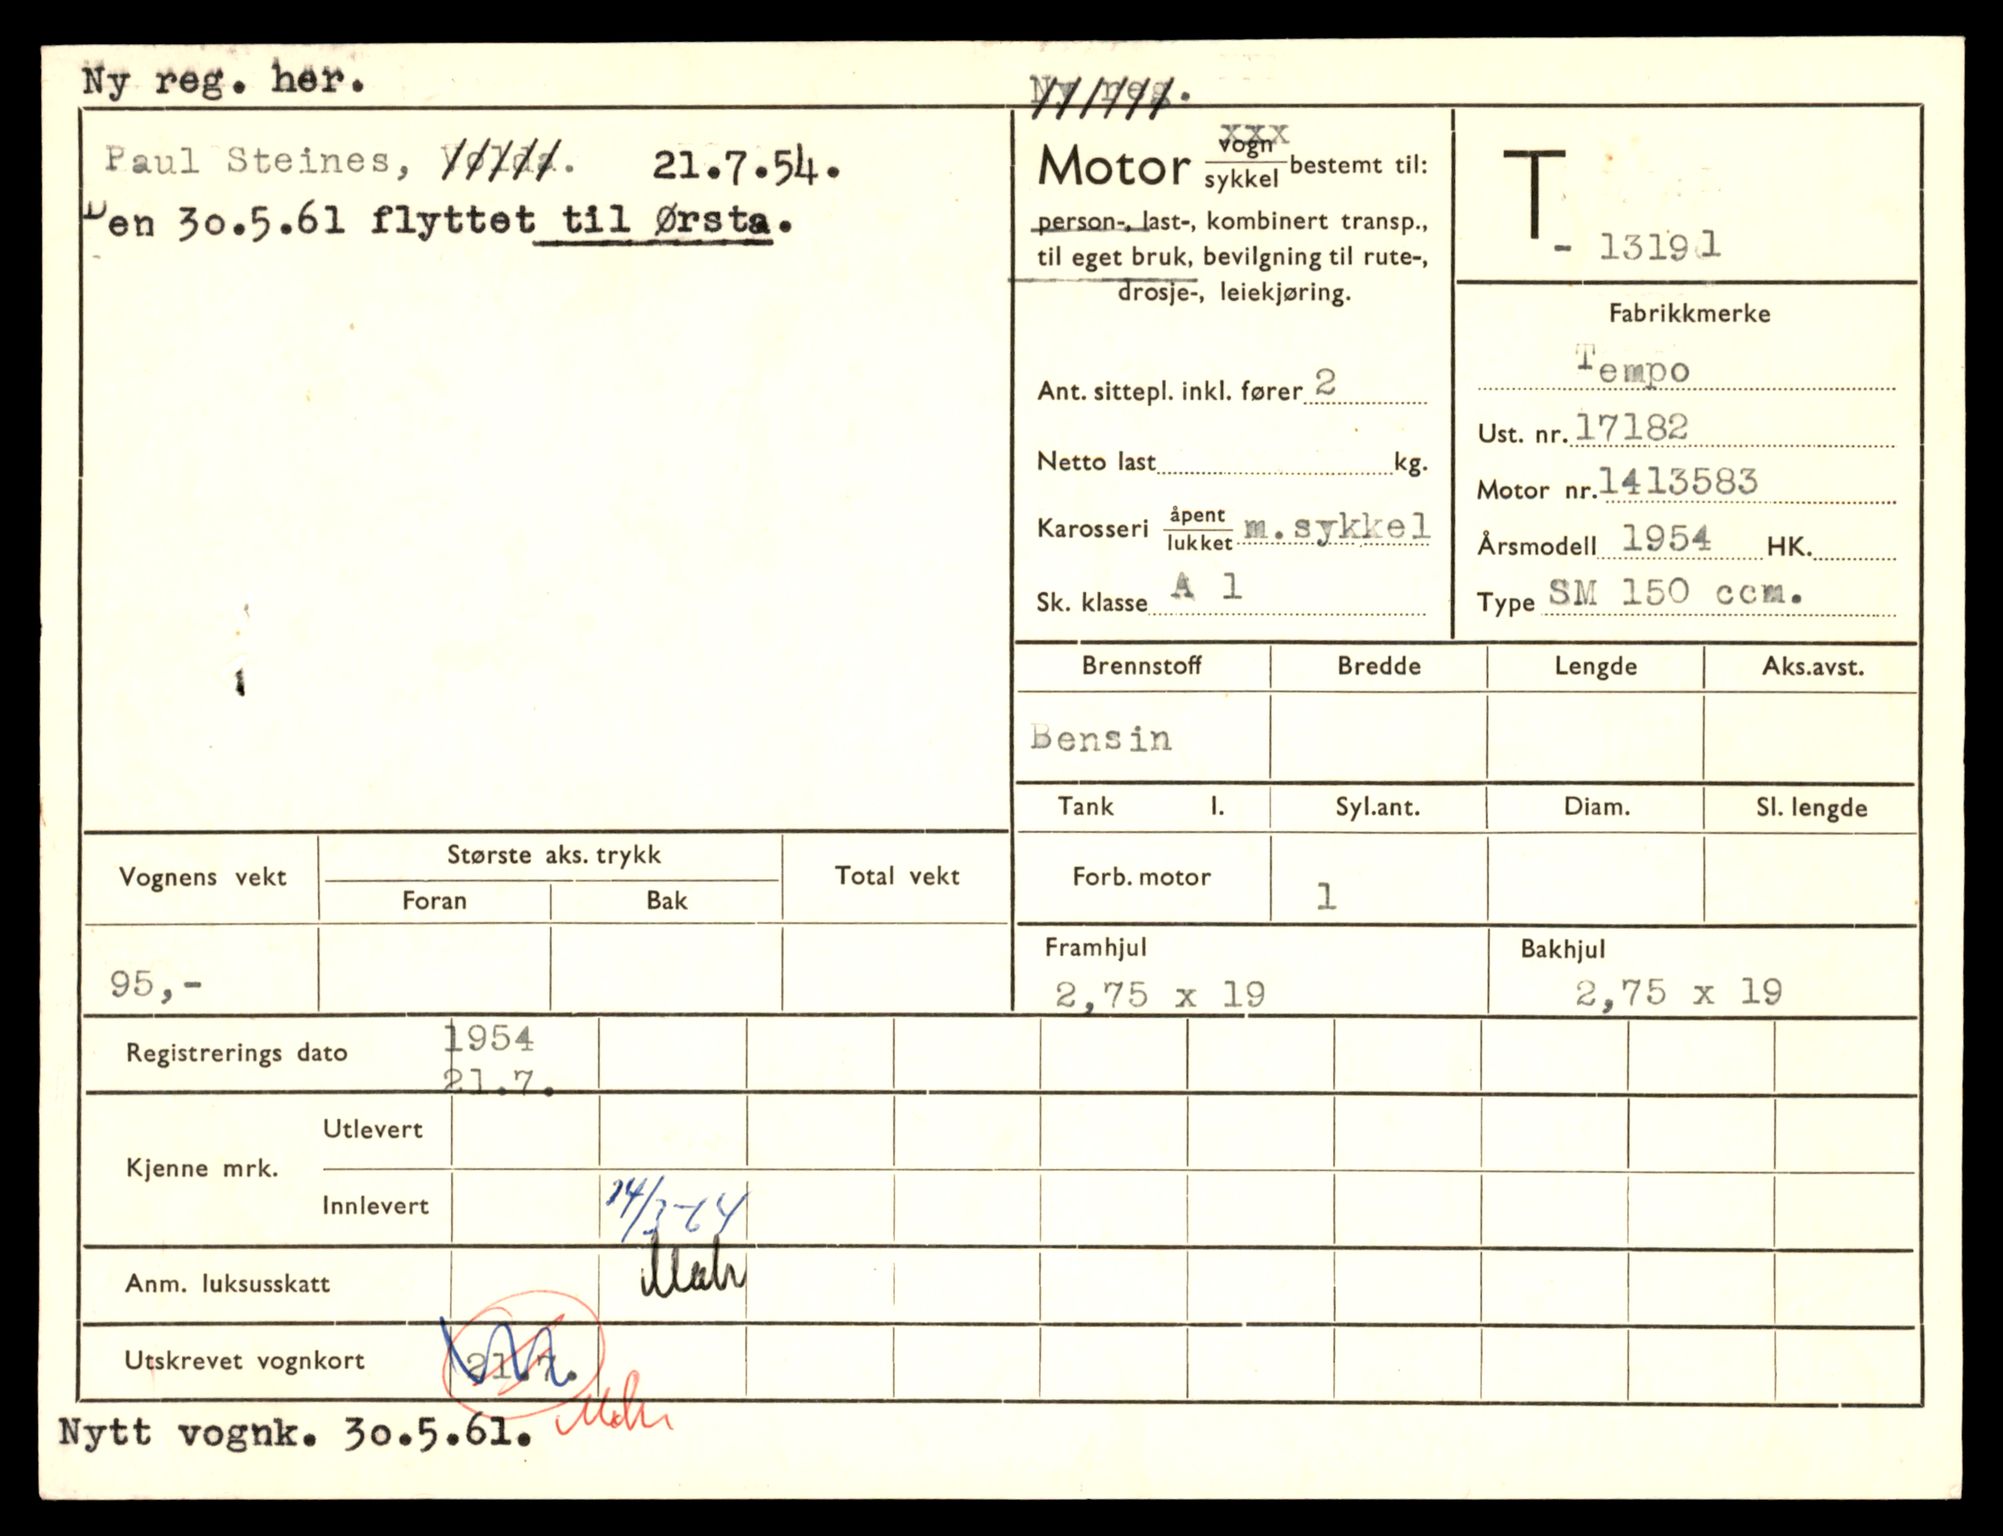 Ny reg. her.
Ny reg.
Paul Steines, Volda. 21.7.54.
Den 30.5.61 flyttet til Ørsta.
Motor vogn/sykkel bestemt til:
xxx
person-, last-, kombinert transp.,
til eget bruk, bevilgning til rute-,
drosje-, leiekjøring.
Ant. sittepl. inkl. fører 2
Netto last kg.
Karosseri åpent/lukket m.sykkel
Sk. klasse A 1
T - 13191
Fabrikkmerke
Tempo
Ust. nr. 17182
Motor nr. 1413583
Årsmodell 1954 HK.
Type SM 150 ccm.
Brennstoff Bredde Lengde Aks.avst.
Bensin
Tank l. Syl.ant. Diam. Sl. lengde
Forb. motor 1
Framhjul Bakhjul
2,75 x 19 2,75 x 19
Vognens vekt Største aks. trykk Total vekt
Foran Bak
95,-
Registrerings dato 1954
21.7.
Kjenne mrk. Utlevert
Innlevert 14/3-64
Anm. luksusskatt
Utskrevet vognkort 21.7.
Nytt vognk. 30.5.61.